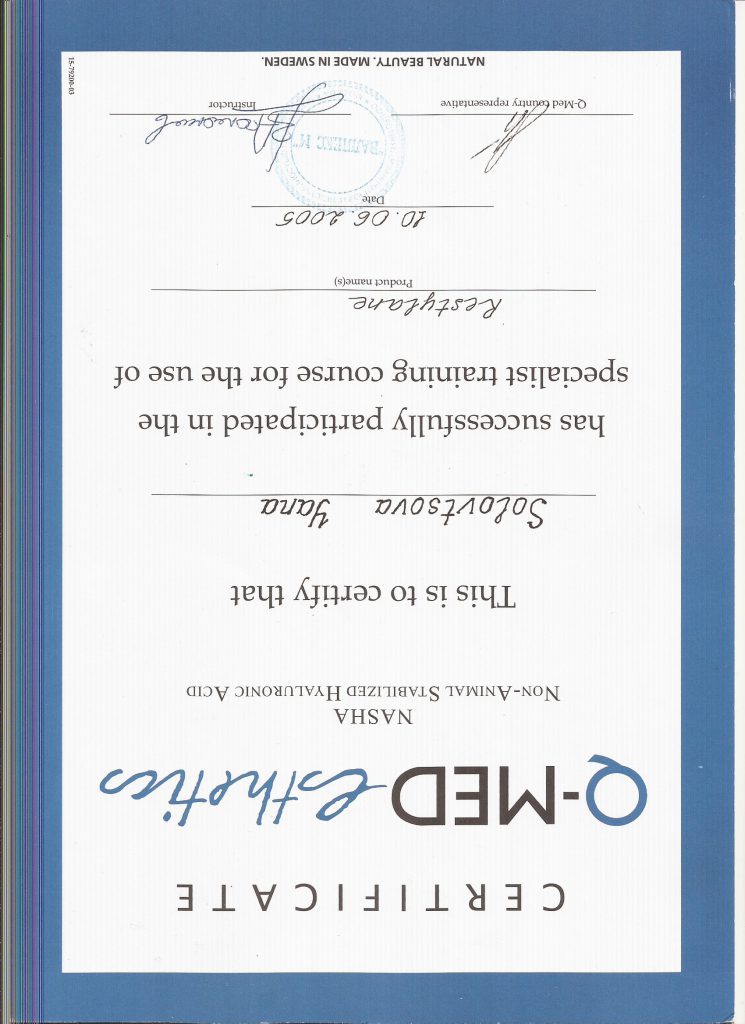 CERTIFICATE
Q-MED esthetics
NASHA
NON-ANIMAL STABILIZED HYALURONIC ACID
This is to certify that
Solovtsova Yana
has successfully participated in the
specialist training course for the use of
Restylane
Product name(s)
10.06.2005
Date
"ВАЛЛЕКС М"
Q-Med country representative
Instructor
NATURAL BEAUTY. MADE IN SWEDEN.
15-79200-03